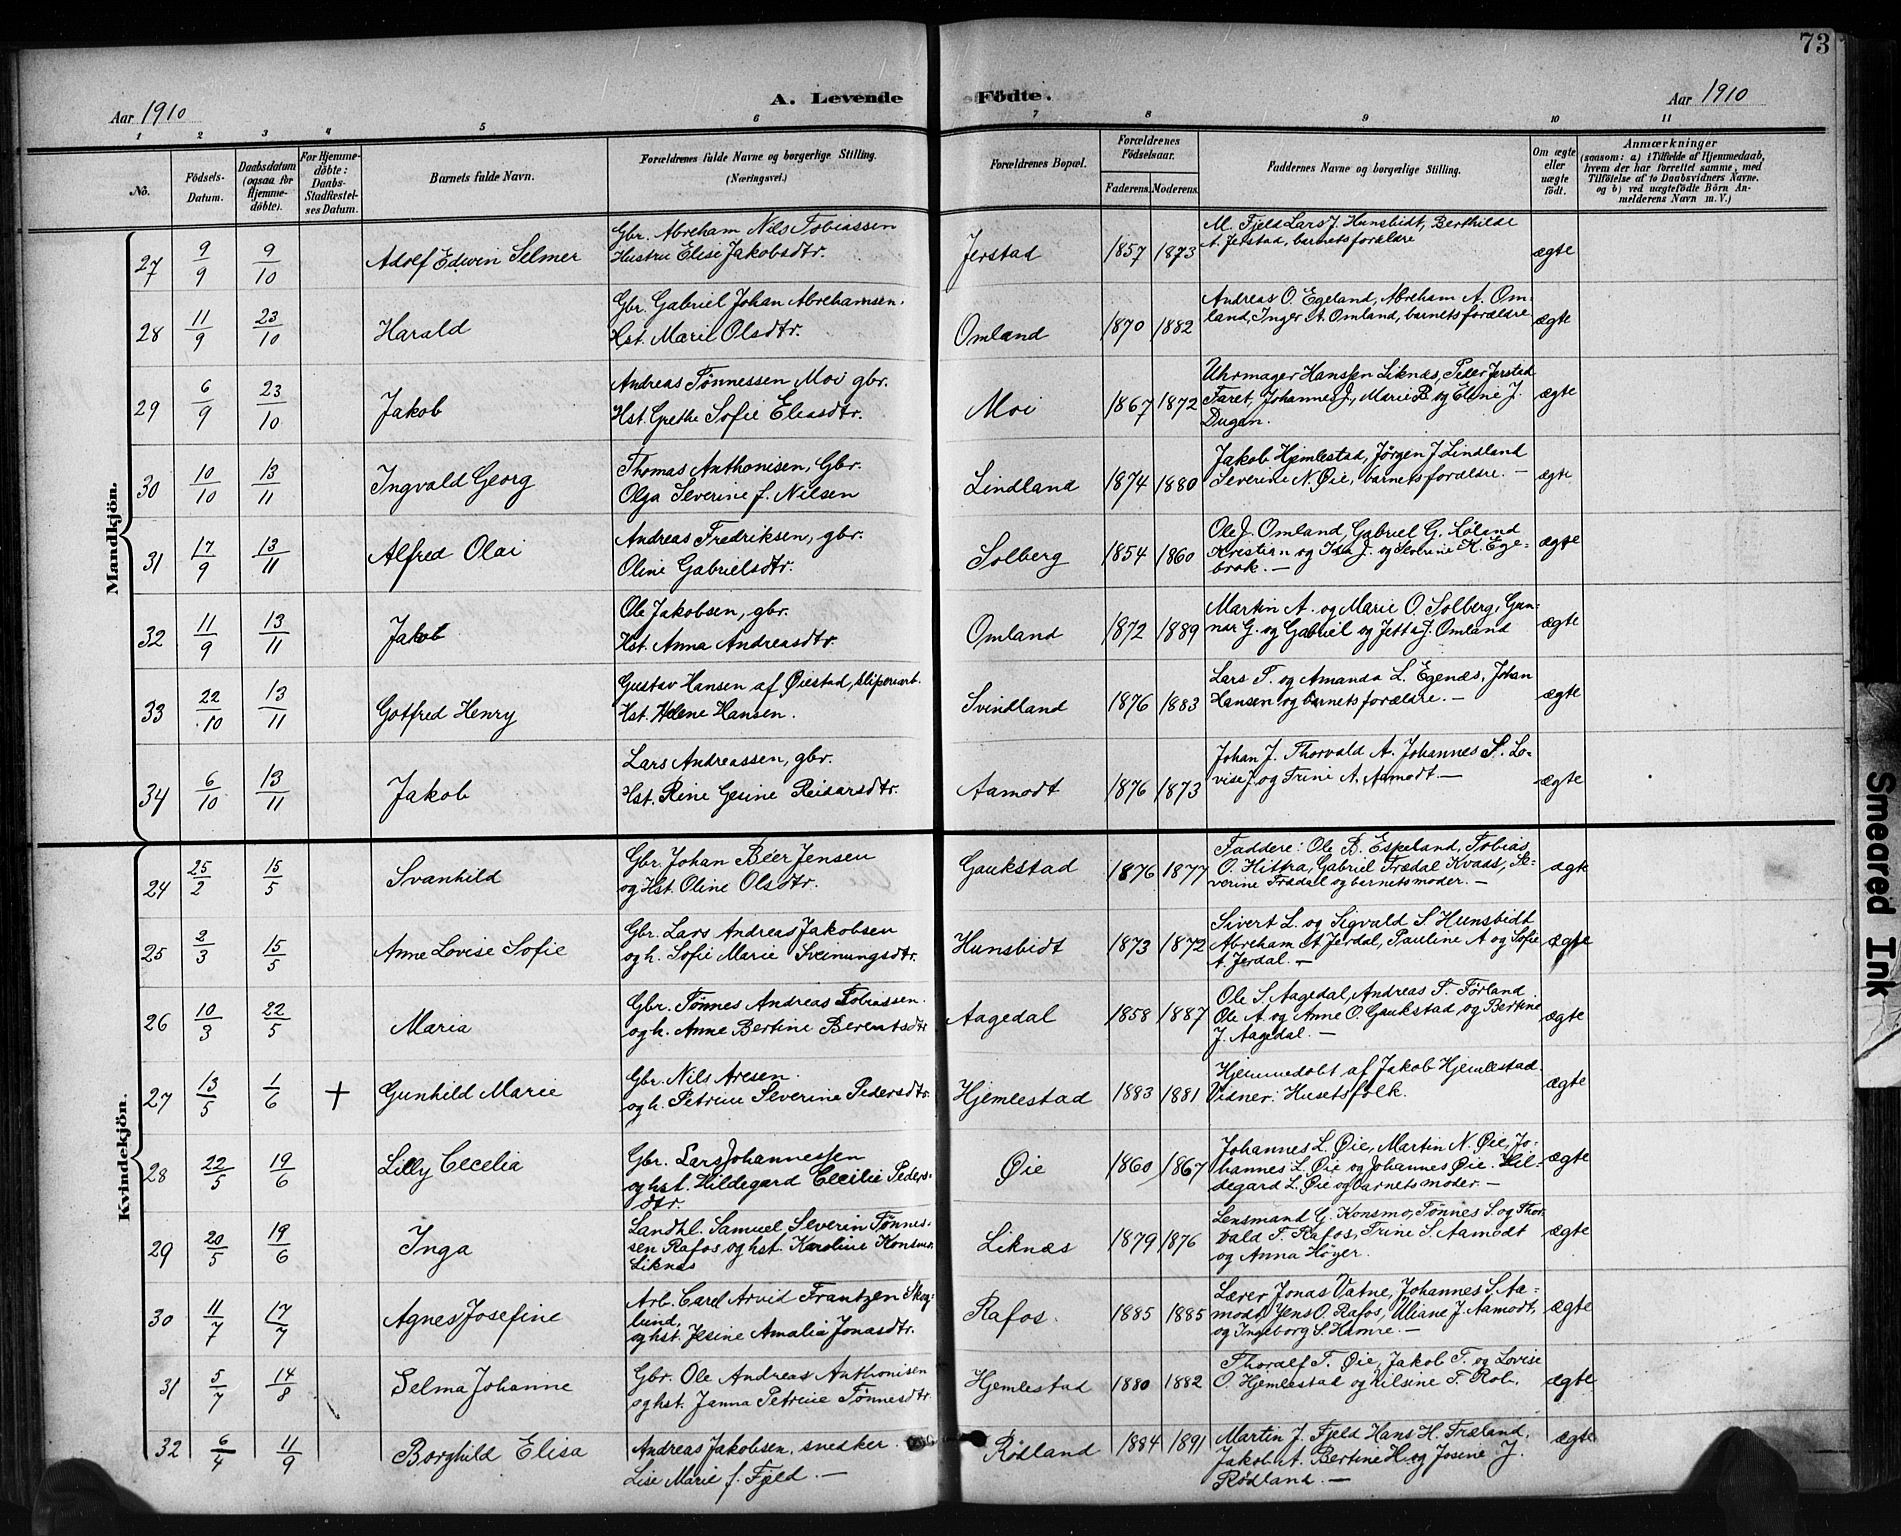 73
Aar 1910
A. Levende Födte.
Aar 1910
1 2 3 4 5 6 7 8 9 10 11
No.
Födsels-Datum.
Daabsdatum (ogsaa for Hjemme-döbte).
For Hjemme-döbte: Daabs-Stadfæstel-ses Datum.
Barnets fulde Navn.
Forældrenes fulde Navne og borgerlige Stilling.
(Næringsvei.)
Forældrenes Bopæl.
Forældrenes Födselsaar.
Faderens. Moderens.
Faddernes Navne og borgerlige Stilling.
Om ægte eller uægte födt.
Anmærkninger
(saasom: a) i Tilfælde af Hjemmedaab,
hvem der har forrettet samme, med
Tilföielse af to Daabsvidners Navne.
og b) ved uægtefödte Börn An-
melderens Navn m. V.)
Mandkjön.
27 9/9 9/10 Adolf Edwin Selmer
Gbr. Abreham Nils Tobiassen
Hustru Elise Jakobsdtr.
Jerstad 1857 1873
M. Fjeld Lars J. Hunsbidt, Berthilde
A. Jerstad, barnets forældre
ægte
28 11/9 23/10 Harald
Gbr. Gabriel Johan Abrehamsen.
Hst. Marie Olsdtr.
Omland 1870 1882
Andreas O. Egeland, Abreham A. Om-
land, Inger A. Omland, barnets forældre
ægte
29 6/9 23/10 Jakob
Andreas Tønnessen Moi gbr.
Hst. Grethe Sofie Eliasdtr.
Moi 1867 1872
Uhrmager Hanssen Liknæs, Peder Jerstad
Faret, Johannes J., Marie B og Eline J.
Dugan.
ægte
30 10/10 13/11 Ingvald Georg
Thomas Anthonisen, Gbr.
Olga Severine f. Nilsen
Lindland 1874 1880
Jakob Hjemlestad, Jørgen J Lindland
Severine N. Øie, barnets forældre. —
ægte
31 17/9 13/11 Alfred Olai
Andreas Fredriksen, gbr.
Oline Gabrielsdtr.
Solberg 1854 1860
Ole J. Omland, Gabriel G. Røland
Kristian og Ida J. og Severine K. Ege-
brok. —
ægte
32 11/9 13/11 Jakob
Ole Jakobsen, gbr.
Hst. Anna Andreasdtr.
Omland 1872 1889
Martin A. og Marie O. Solberg, Gun-
nar G. og Gabriel og Jetta J. Omland
ægte
33 22/10 13/11 Gotfred Henry
Gustav Hansen af Øiestad, sliperiarb.
Hst. Helene Hansen.
Svindland 1876 1883
Lars T. og Amanda L. Egenæs, Johan
Hansen og barnets forældre. —
ægte
34 6/10 13/11 Jakob
Lars Andreassen, gbr.
Hst. Rine Gesine Reisarsdtr.
Aamodt 1876 1873
Johan J. Thorvald A. Johannes S. Lo-
vise J. og Trine A. Aamodt —
ægte
Kvindekjön.
24 25/2 15/5 Svanhild
Gbr. Johan Béer Jensen
og Hst. Oline Olsdtr.
Gaukstad 1876 1877
Faddere: Ole B. Espeland, Tobias
O. Hittra, Gabriel Trædal Kvaas, Se-
verine Trædal og barnets moder. —
ægte
25 2/3 15/5 Anne Lovise Sofie
Gbr. Lars Andreas Jakobsen
og h. Sofie Marie Sveinungsdtr.
Hunsbidt 1873 1872
Sivert L. og Sigvald S Hunsbidt
Abreham A Jerdal, Pauline A og Sofie
A. Jerdal. —
ægte
26 10/3 22/5 Maria
Gbr. Tønnes Andreas Tobiassen.
og h. Anne Bertine Berentsdtr
Aagedal 1858 1887
Ole S. Aagedal, Andreas T. Førland
Ole A. og Anne O. Gaukstad, og Bertine
J. Aagedal. —
ægte
27 13/5 1/6 + Gunhild Marie
Gbr. Nils Aresen.
og h. Petrine Severine Pedersdtr.
Hjemlestad 1883 1881
Hjemmedøbt af Jakob Hjemlestad.
Vidner: Husets folk.
ægte
28 22/5 19/6 Lilly Cecelia
Gbr. Lars Johannessen
og hst. Hildegard Cecilie Peders-
dtr.
Øie 1860 1867
Johannes L. Øie, Martin N. Øie, Jo-
hannes L. Øie og Johannes Øie. Hil-
degard L. Øie og barnets moder. —
ægte
29 20/5 19/6 Inga
Landhl. Samuel Severin Tønnes-
sen Rafos, og hst. Karoline Konsmo.
Liknæs
Liknæs 1879 1876
Lensmand G. Konsmo, Tønnes S. og Thor-
vald T. Rafos, Trine S. Aamodt
og Anna Høyer.
ægte
30 11/7 17/7 Agnes Josefine
Arb. Carl Arvid Frantzen Skog-
lund,
og hst. Jesine Amalia Jonasdtr.
Rafos. 1885 1885
Lærer Jonas Vatne, Johannes S. Aa-
modt, Jens O. Rafos, Uliane J. Aamodt,
og Ingeborg S. Hamre. —
ægte
31 5/7 14/8 Selma Johanne
Gbr. Ole Andreas Anthonisen
og hst. Janna Petrine Tønnesdtr.
Hjemlestad 1880 1882
Thoralf T. Øie, Jakob T. og Lovise
O. Hjemlestad og Nilsine T. Rob.
ægte
32 6/4 11/9 Borghild Elisa
Andreas Jakobsen, snedker.
Lise Marie f. Fjeld. —
Rødland 1884 1891
Martin J. Fjeld Hans H. Træland,
Jakob A. Bertine H og Josine J.
Rødland. —
ægte
Smeared Ink